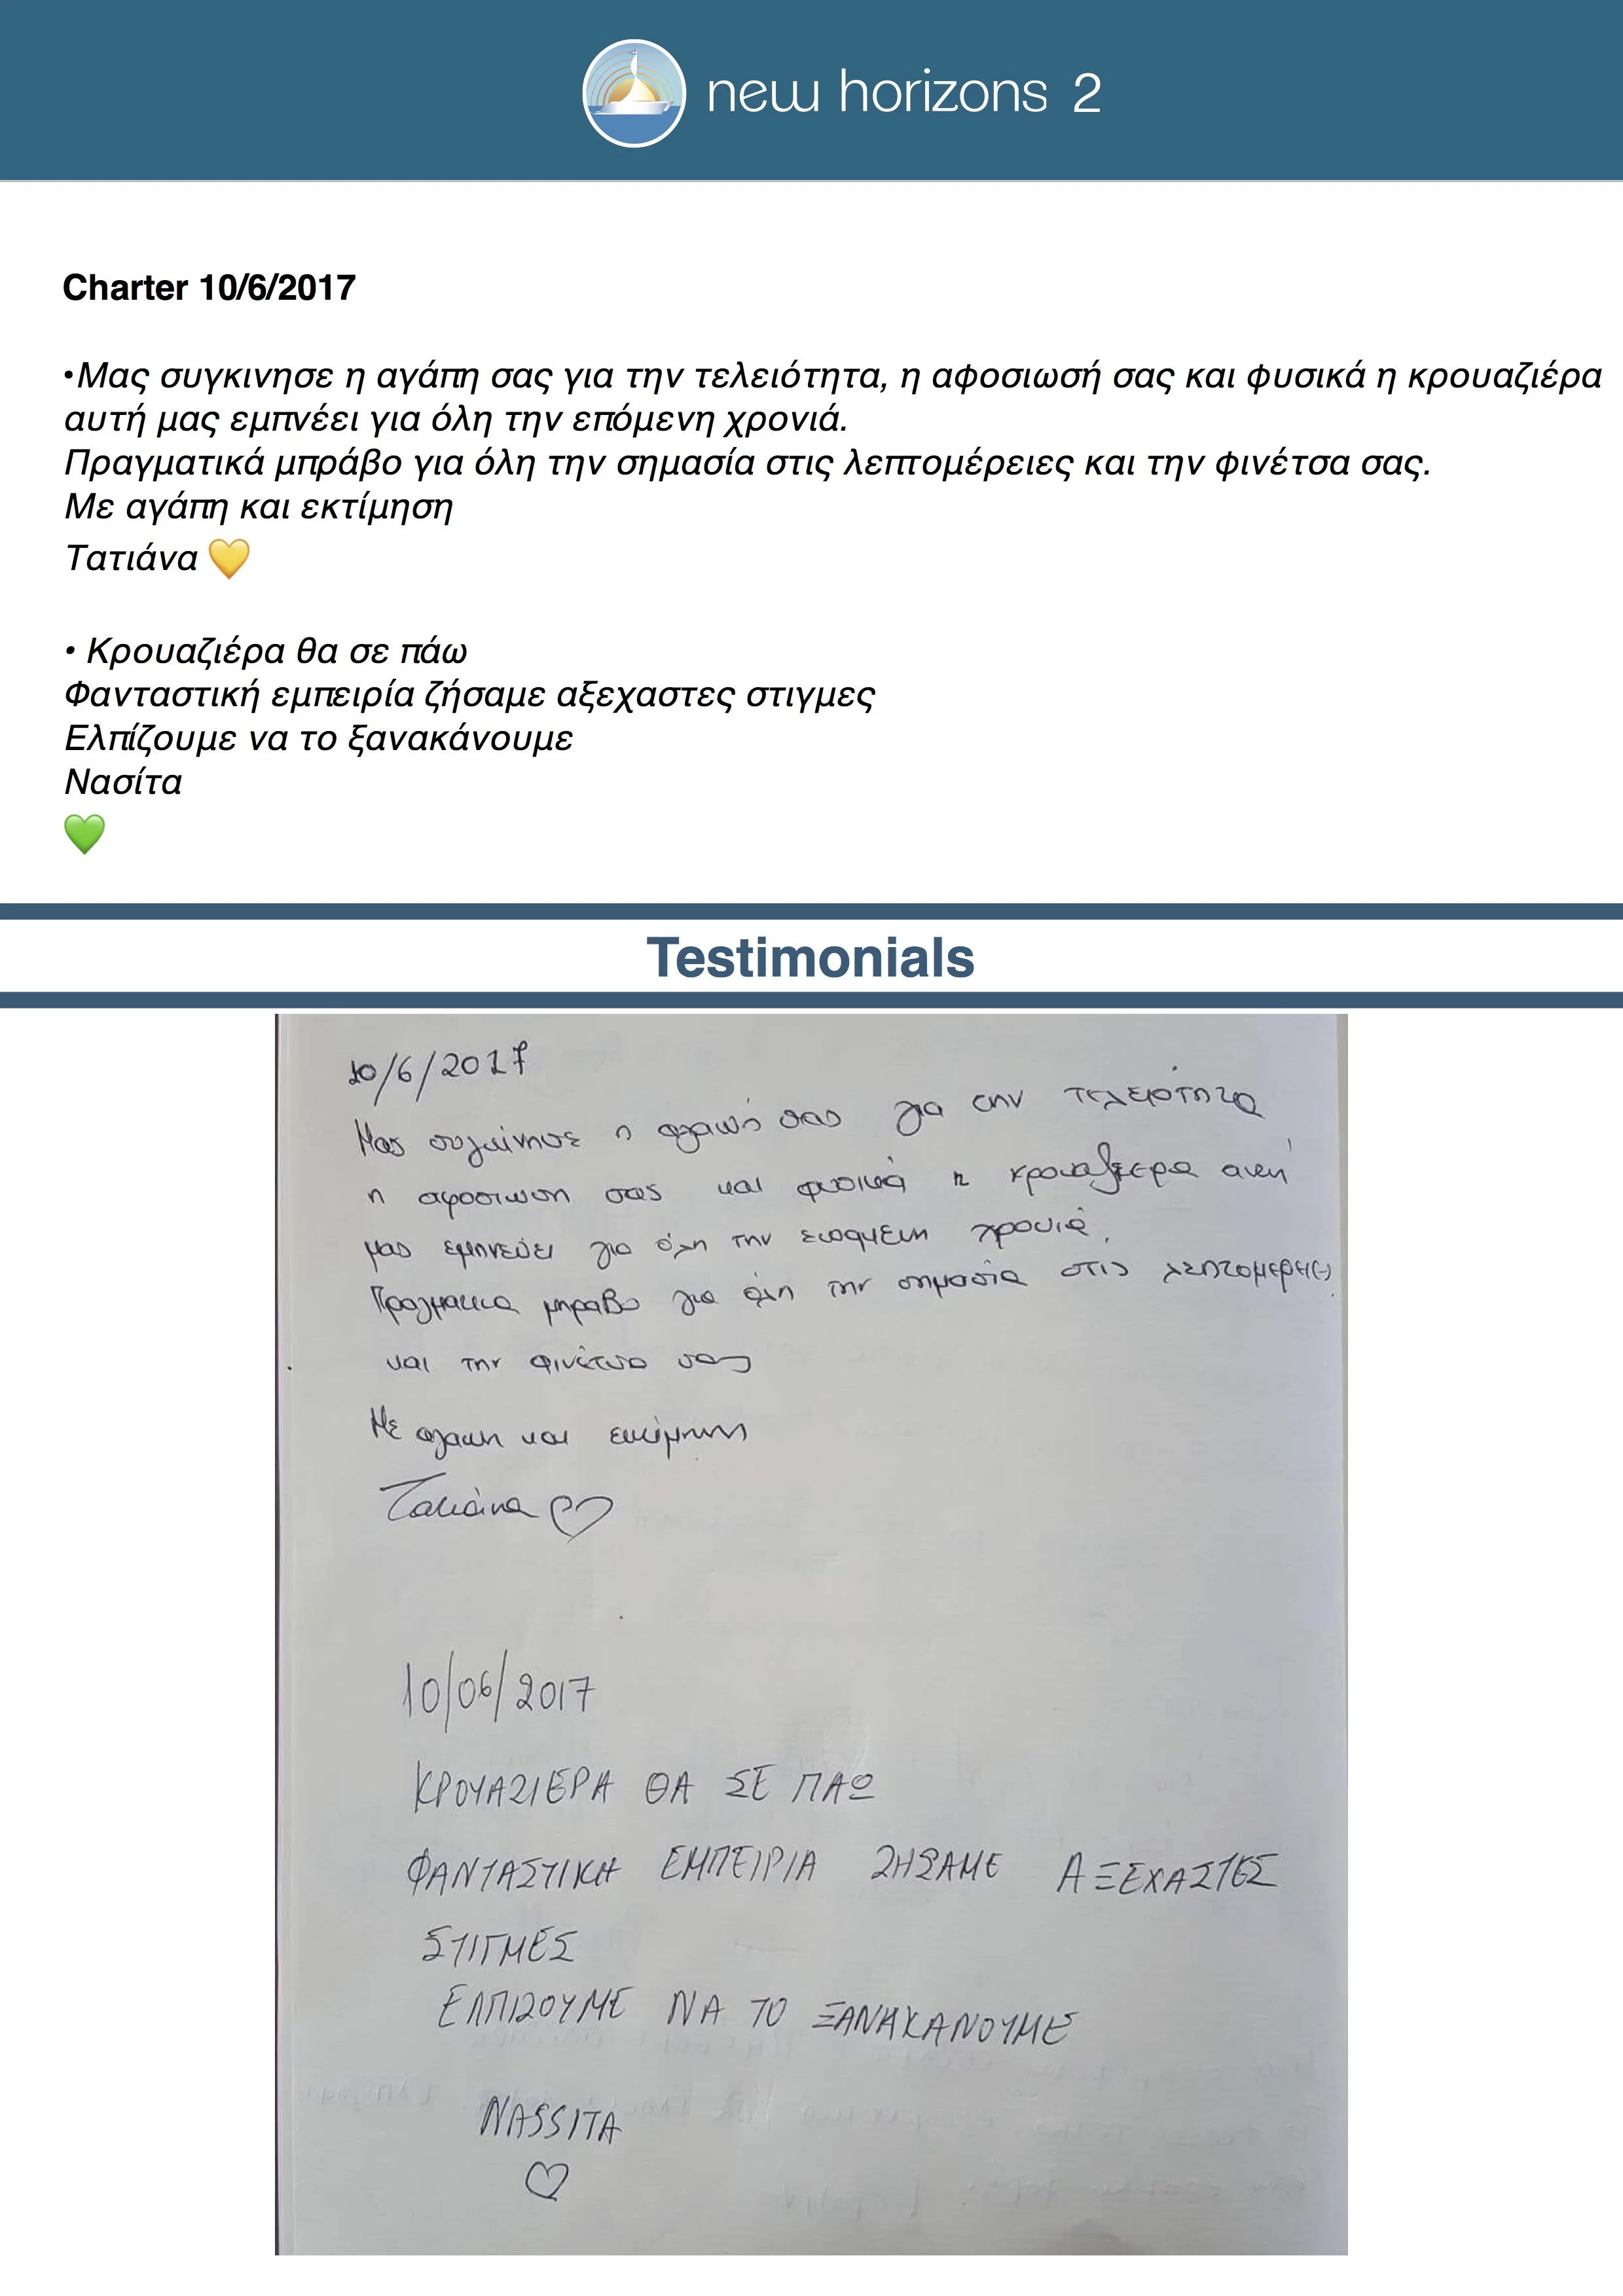 new horizons 2
Charter 10/6/2017
•Μας συγκινησε η αγάπη σας για την τελειότητα, η αφοσιωσή σας και φυσικά η κρουαζιέρα
αυτή μας εμπνέει για όλη την επόμενη χρονιά.
Πραγματικά μπράβο για όλη την σημασία στις λεπτομέρειες και την φινέτσα σας.
Με αγάπη και εκτίμηση
Τατιάνα 💛
• Κρουαζιέρα θα σε πάω
Φανταστική εμπειρία ζήσαμε αξεχαστες στιγμες
Ελπίζουμε να το ξανακάνουμε
Νασίτα
💚
Testimonials
10/6/2017
Μας συγκίνησε η αγαπή σας για την τελειότητα
η αφοσιωση σας και φυσικά η κρουαζιερα αυτή
μας εμπνεύει για όλη την επομενη χρονιά.
Πραγματικα μπραβο για όλη την σημασία στις λεπτομερει(-)
και την φινέτσα σας
Με αγαπη και εκτίμηση
Τατιάνα ♡
10/06/2017
ΚΡΟΥΑΖΙΕΡΑ ΘΑ ΣΕ ΠΑΩ
ΦΑΝΤΑΣΤΙΚΗ ΕΜΠΕΙΡΙΑ ΖΗΣΑΜΕ ΑΞΕΧΑΣΤΕΣ
ΣΤΙΓΜΕΣ
ΕΛΠΙΖΟΥΜΕ ΝΑ ΤΟ ΞΑΝΑΚΑΝΟΥΜΕ
NASSITA
♡